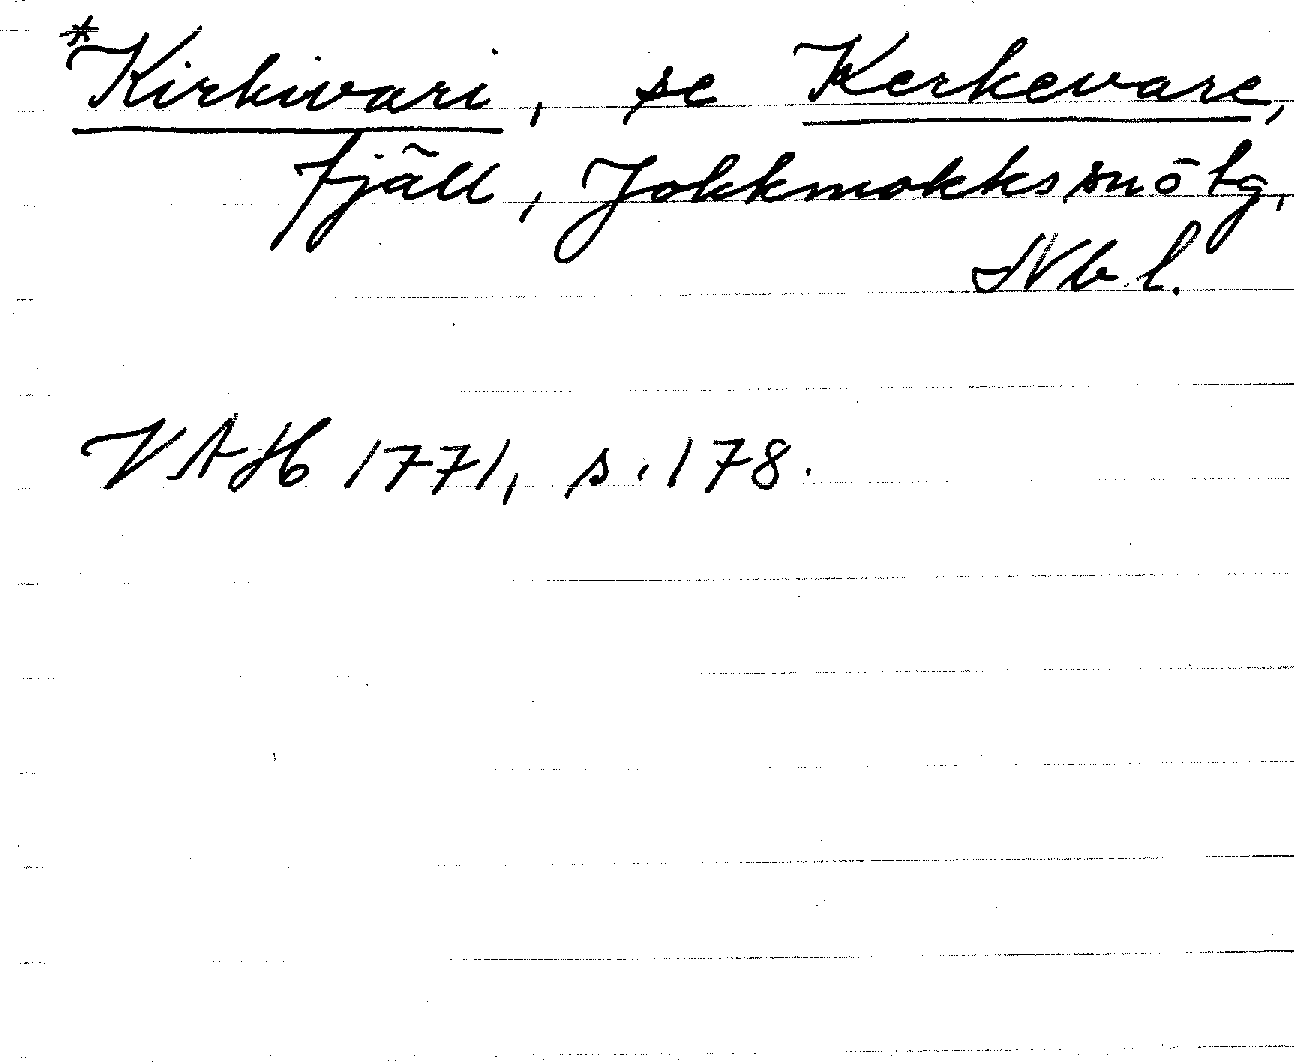 *Kirkivari, se Kerkevare,
fjäll, Jokkmokks snöbg,
Nb l.
VAH 1771, s. 178.